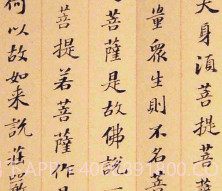 大身須菩提菩
量眾生則不名菩
菩薩是故佛說一
菩提若菩薩作是
何以故如来說莊嚴